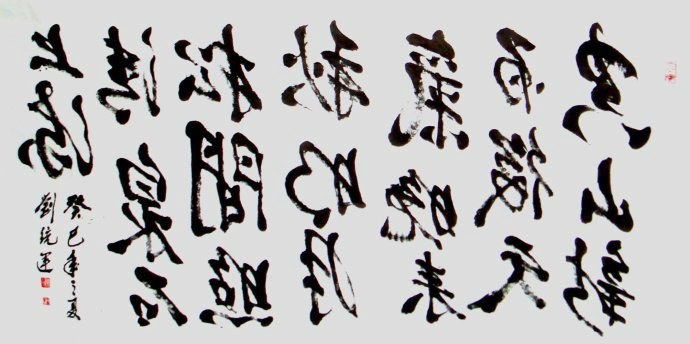 空山新
雨後天
氣晚來
秋明月
松間照
清泉石
上流
癸巳年之夏
劉